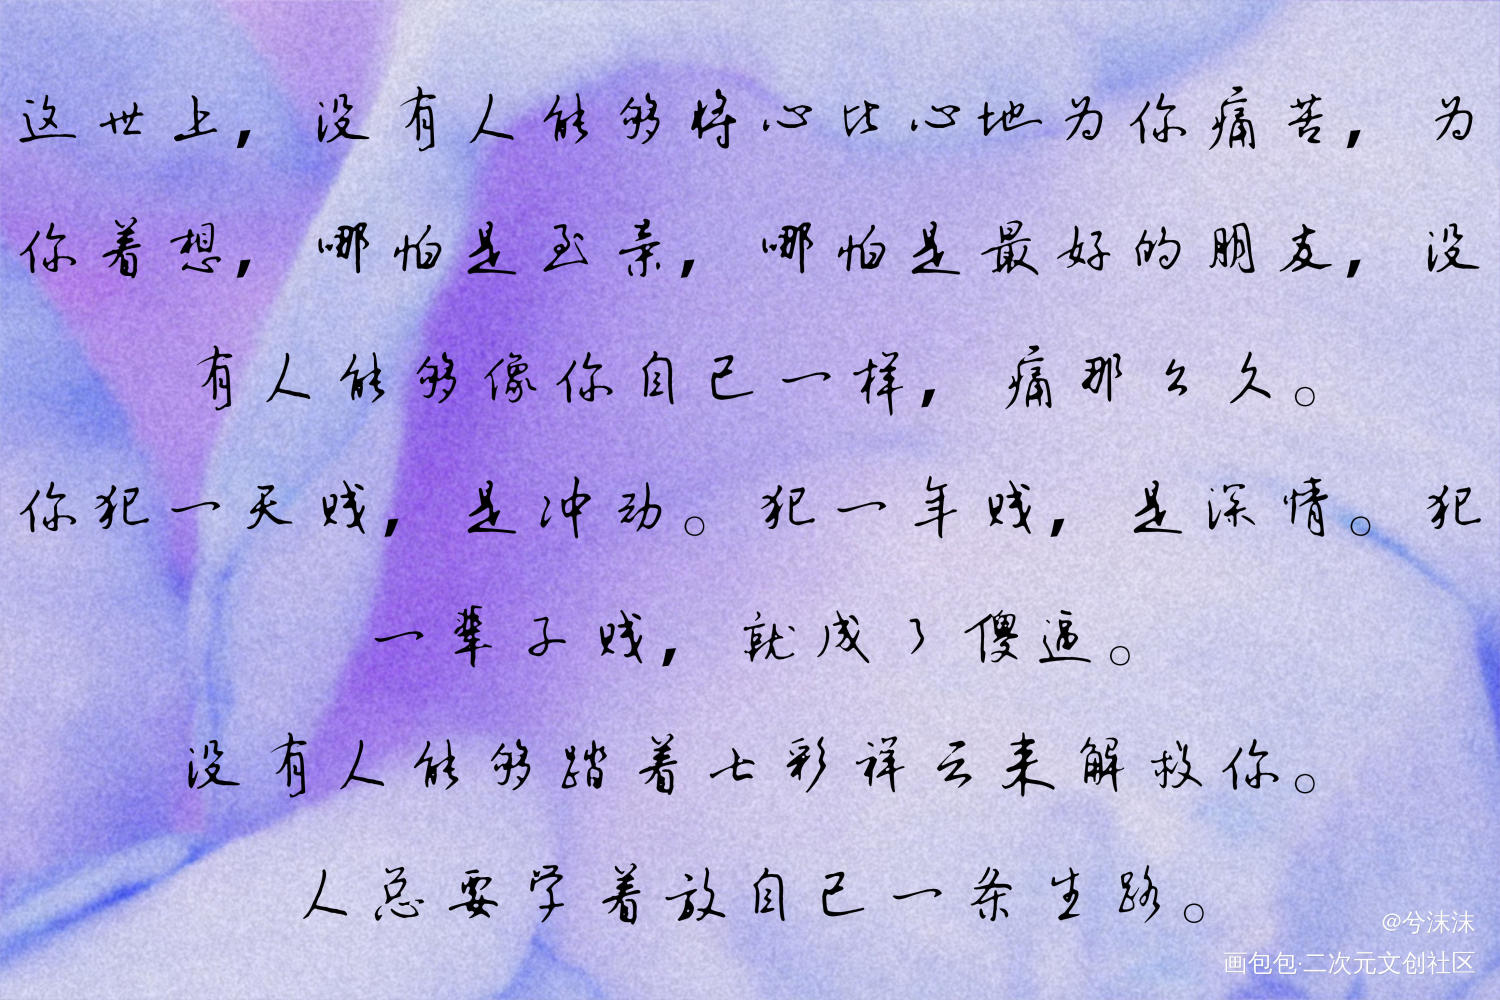 这世上，没有人能够将心比心地为你痛苦，为
你着想，哪怕是至亲，哪怕是最好的朋友，没
有人能够像你自己一样，痛那么久。
你犯一天贱，是冲动。犯一年贱，是深情。犯
一辈子贱，就成了傻逼。
没有人能够踏着七彩祥云来解救你。
人总要学着放自己一条生路。
@兮沫沫
画包包·二次元文创社区